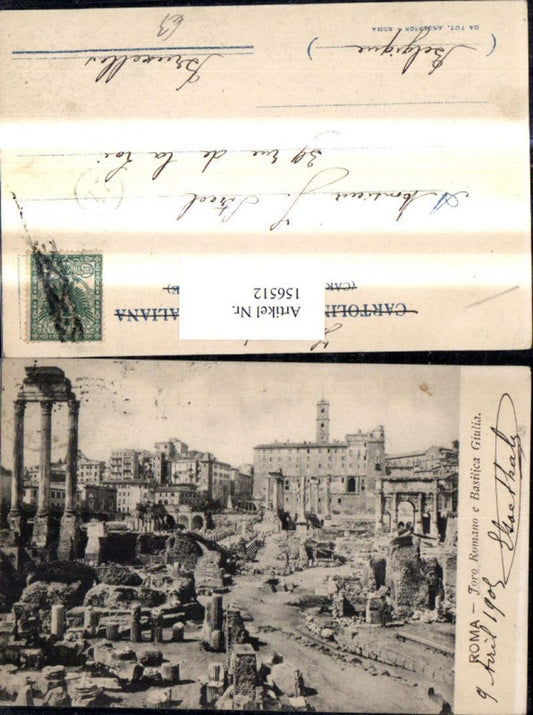 CARTOLIN
ALIANA
(CAR
E)
A Monsieur J. Strel
39 rue de la Loi
Bruxelles
( Belgique )
63
DA FOT. ANDERSON - ROMA
Artikel Nr.
156512
ROMA - Foro Romano e Basilica Giulia.
9 Avril 1905